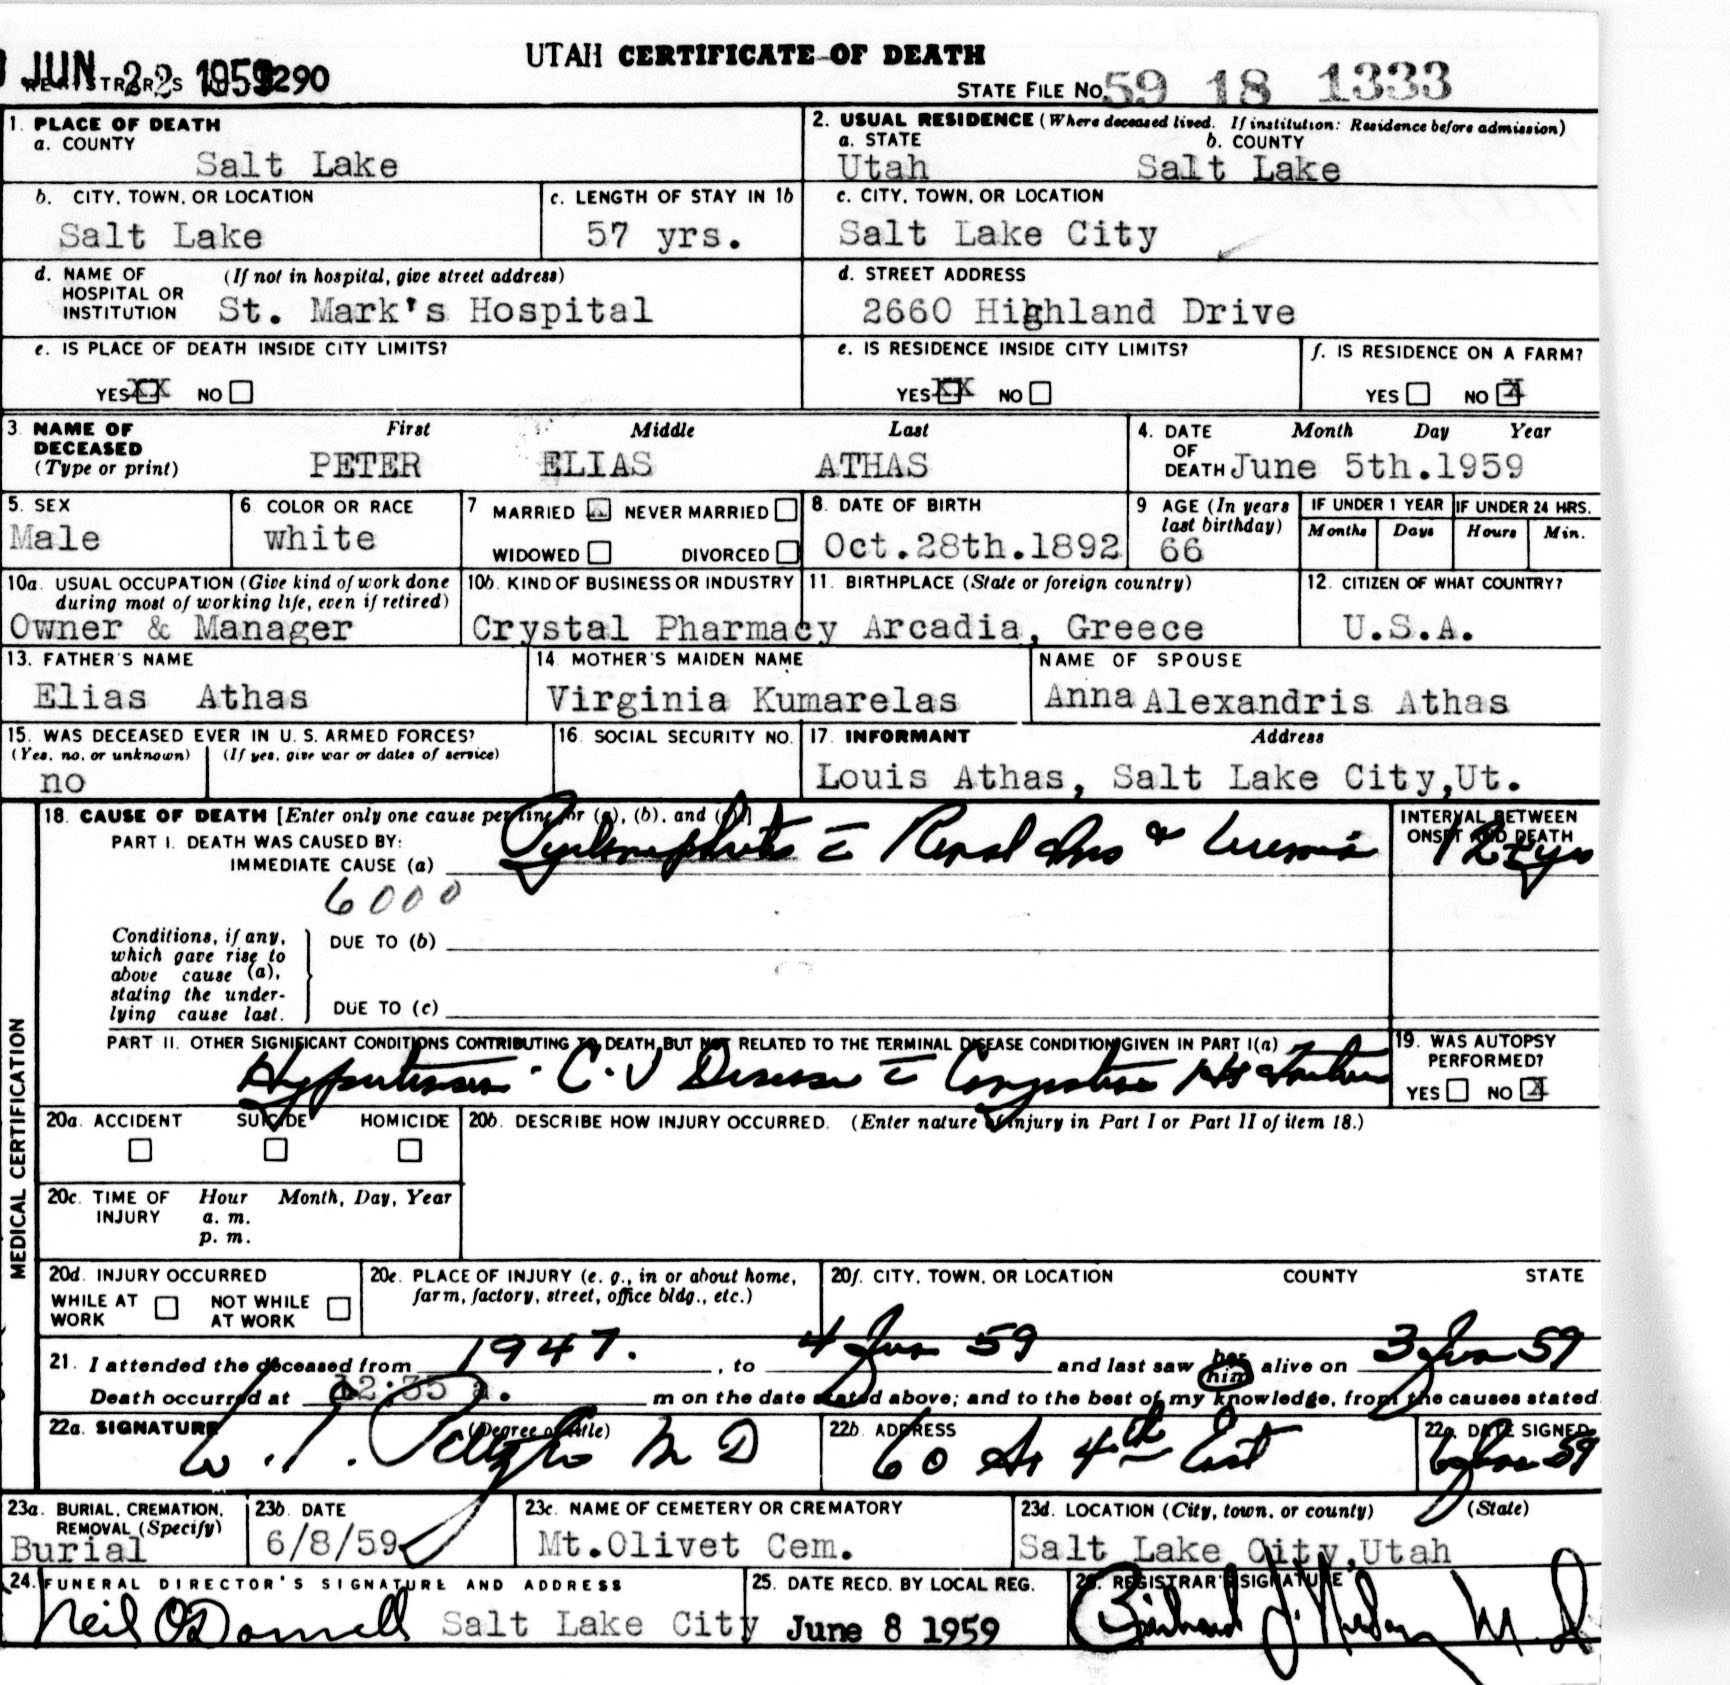 JUN 22 1959
UTAH CERTIFICATE OF DEATH
REGISTRAR'S 1290
STATE FILE No. 59 18 1333
1. PLACE OF DEATH
a. COUNTY
Salt Lake
2. USUAL RESIDENCE (Where deceased lived. If institution: Residence before admission)
a. STATE b. COUNTY
Utah Salt Lake
b. CITY, TOWN, OR LOCATION
Salt Lake
c. LENGTH OF STAY IN 1b
57 yrs.
c. CITY, TOWN, OR LOCATION
Salt Lake City
d. NAME OF HOSPITAL OR INSTITUTION (If not in hospital, give street address)
St. Mark's Hospital
d. STREET ADDRESS
2660 Highland Drive
e. IS PLACE OF DEATH INSIDE CITY LIMITS?
YES XX NO
e. IS RESIDENCE INSIDE CITY LIMITS?
YES XX NO
f. IS RESIDENCE ON A FARM?
YES NO X
3. NAME OF DECEASED (Type or print)
First Middle Last
PETER ELIAS ATHAS
4. DATE OF DEATH Month Day Year
June 5th.1959
5. SEX
Male
6. COLOR OR RACE
white
7 MARRIED X NEVER MARRIED
WIDOWED DIVORCED
8. DATE OF BIRTH
Oct.28th.1892
9 AGE (In years last birthday)
66
IF UNDER 1 YEAR IF UNDER 24 HRS.
Months Days Hours Min.
10a. USUAL OCCUPATION (Give kind of work done during most of working life, even if retired)
Owner & Manager
10b. KIND OF BUSINESS OR INDUSTRY
Crystal Pharmacy
11. BIRTHPLACE (State or foreign country)
Arcadia, Greece
12. CITIZEN OF WHAT COUNTRY?
U.S.A.
13. FATHER'S NAME
Elias Athas
14. MOTHER'S MAIDEN NAME
Virginia Kumarelas
NAME OF SPOUSE
Anna Alexandris Athas
15. WAS DECEASED EVER IN U.S. ARMED FORCES?
(Yes, no, or unknown) (If yes, give war or dates of service)
no
16. SOCIAL SECURITY NO.
17. INFORMANT Address
Louis Athas, Salt Lake City,Ut.
MEDICAL CERTIFICATION
18. CAUSE OF DEATH [Enter only one cause per line for (a), (b), and (c)]
INTERVAL BETWEEN ONSET AND DEATH
PART I. DEATH WAS CAUSED BY:
IMMEDIATE CAUSE (a) Pyelonephritis c Renal & Uremia 12 yrs
6000
Conditions, if any, which gave rise to above cause (a), stating the underlying cause last.
DUE TO (b)
DUE TO (c)
PART II. OTHER SIGNIFICANT CONDITIONS CONTRIBUTING TO DEATH BUT NOT RELATED TO THE TERMINAL DISEASE CONDITION GIVEN IN PART I(a)
Hypertension - C-V Disease c Congestive Ht Failure
19. WAS AUTOPSY PERFORMED?
YES NO X
20a. ACCIDENT SUICIDE HOMICIDE
20b. DESCRIBE HOW INJURY OCCURRED. (Enter nature of injury in Part I or Part II of item 18.)
20c. TIME OF INJURY Hour Month, Day, Year
a. m.
p. m.
20d. INJURY OCCURRED
WHILE AT WORK NOT WHILE AT WORK
20e. PLACE OF INJURY (e. g., in or about home, farm, factory, street, office bldg., etc.)
20f. CITY, TOWN, OR LOCATION COUNTY STATE
21. I attended the deceased from 1947. , to 4 Jun 59 and last saw her him alive on 3 Jun 59
Death occurred at 12:35 a. m on the date stated above; and to the best of my knowledge, from the causes stated.
22a. SIGNATURE (Degree or title)
M D
22b. ADDRESS
60 So 4th East
22c. DATE SIGNED
6 June 59
23a. BURIAL, CREMATION, REMOVAL (Specify)
Burial
23b. DATE
6/8/59
23c. NAME OF CEMETERY OR CREMATORY
Mt.Olivet Cem.
23d. LOCATION (City, town, or county) (State)
Salt Lake City,Utah
24. FUNERAL DIRECTOR'S SIGNATURE AND ADDRESS
Neil O'Donnell Salt Lake City
25. DATE RECD. BY LOCAL REG.
June 8 1959
26. REGISTRAR'S SIGNATURE